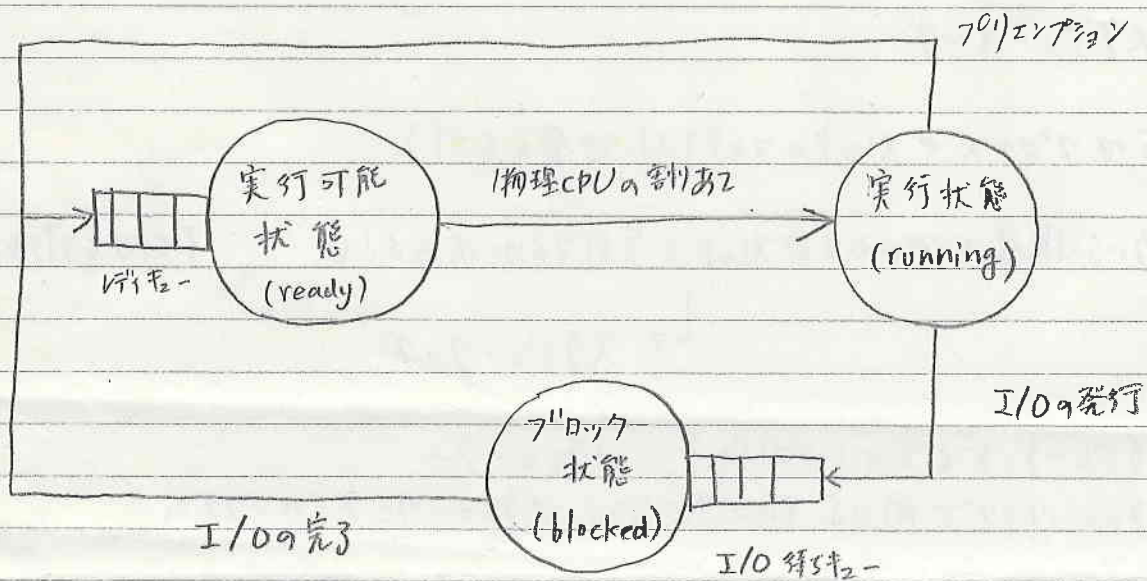 プリエンプション
実行可能
状態
(ready)
レディキュー
物理CPUの割りあて
実行状態
(running)
I/Oの発行
ブロック
状態
(blocked)
I/O 待ちキュー
I/Oの完了